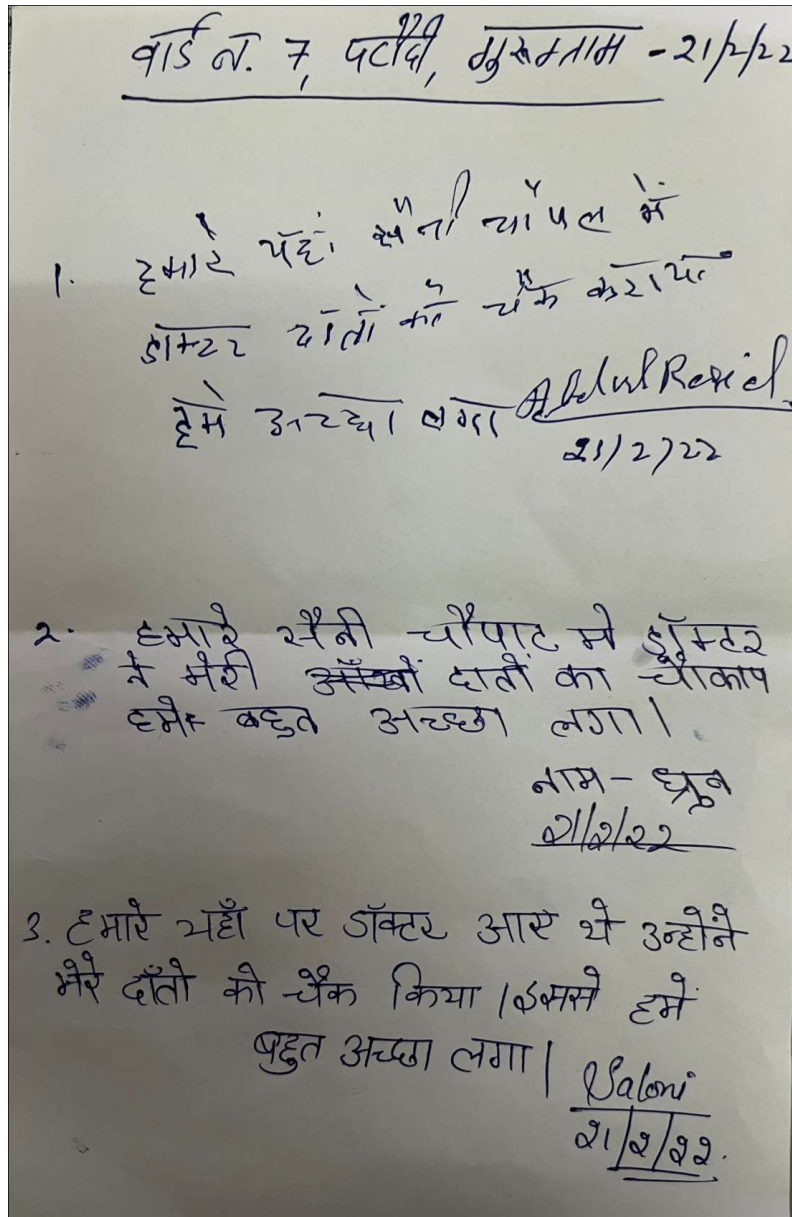 वार्ड नं. 7, पटौदी, गुरूग्राम - 21/2/22
1. हमारे यहां सैनी चौपल में
डाक्टर दांतो को चैक कराया
हमे अच्छा लगा Abdul Rasid
21/2/22
2. हमारे सैनी चौपाट मे डॉक्टर
ने मेरी आँखों दातों का चौकाप
हमे बहुत अच्छा लगा।
नाम - ध्रुव
21/2/22
3. हमारे यहाँ पर डॉक्टर आए थे उन्होंने
मेरे दाँतो को चैक किया। इससे हमें
बहुत अच्छा लगा।
Saloni
21/2/22.